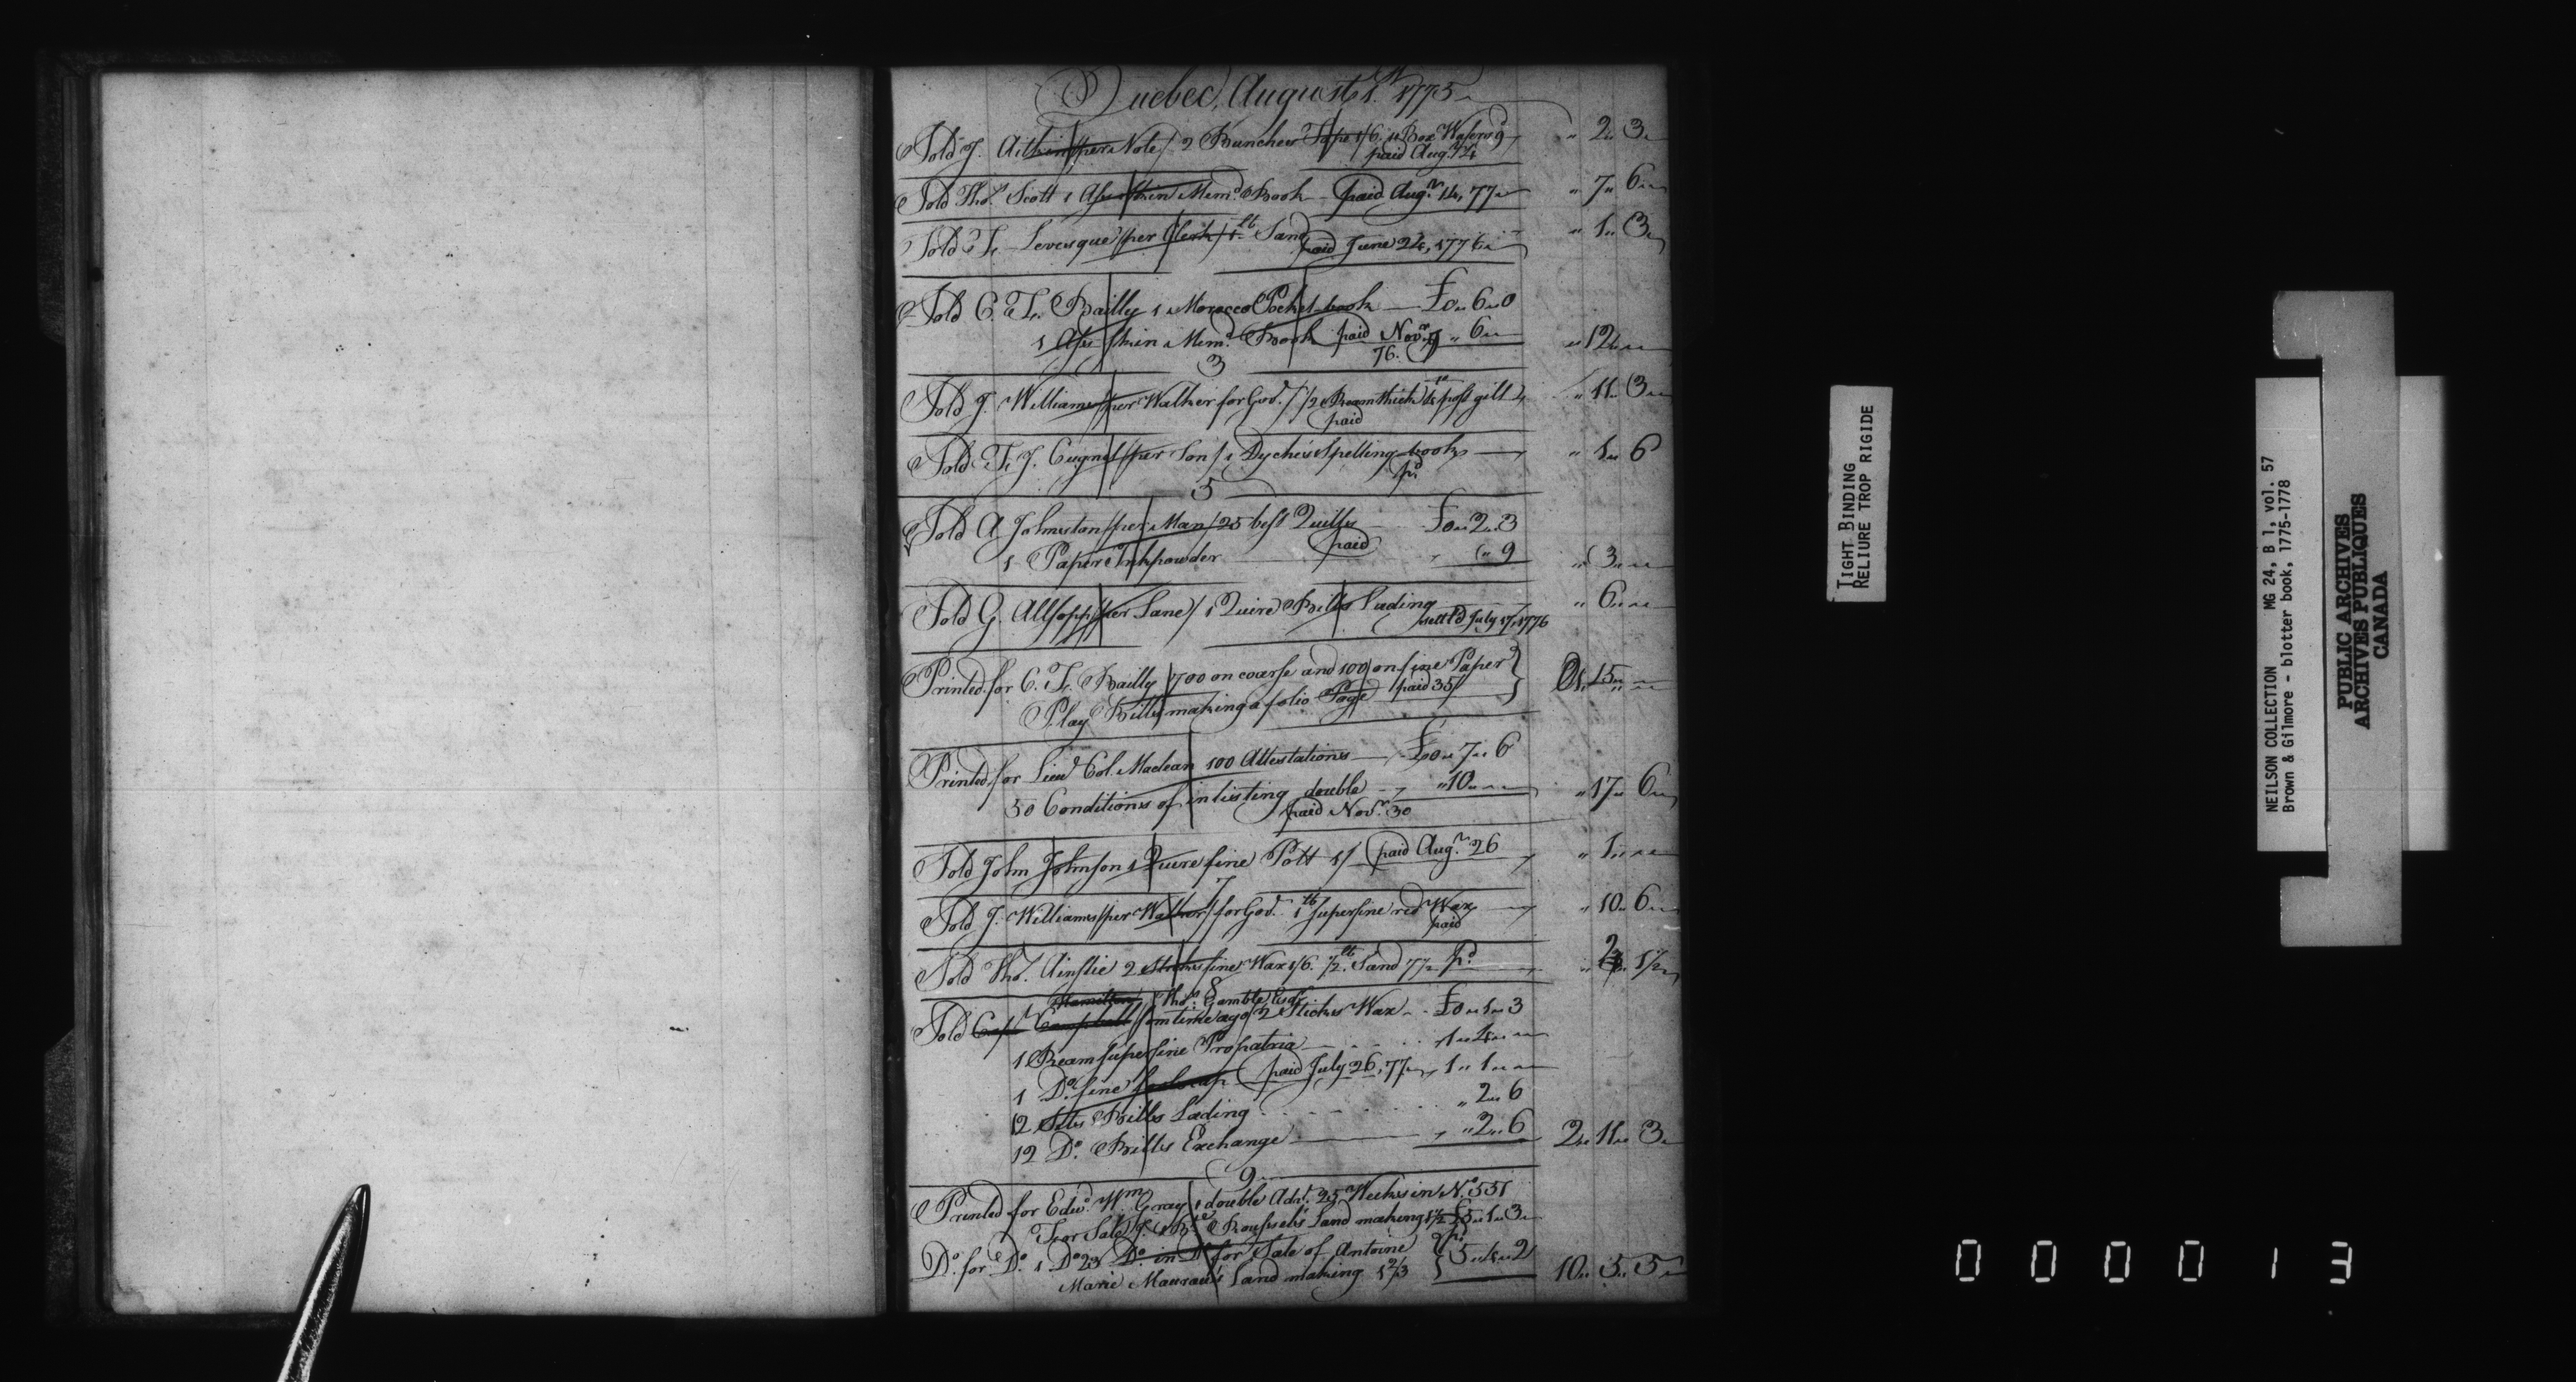 Quebec, August 1st 1775
Sold J. Aitkin /per Note/ 2 Bunches Tape 1/6. 1 Box Wafers 9d " 2 " 3
paid Augr. 24
Sold Thos. Scott 1 Ass skin Memd. Book paid Augr. 14, 77 " 7 " 6
Sold F. Levesque /per Clerk/ 1 lb Sand " 1 " 3
paid June 24, 1776
Sold C. F. Bailly 1 Morocco Pocket-book £0 " 6 " 0
1 Ass skin Memd. Book paid Novr. 9 " 6 " " 12 "
76.
3
Sold J. Williams /per Walker for Govt./ 1/2 Ream thick 4to post gilt " 11 " 3
paid
Sold F. J. Cugnet /per Son/ 1 Dyche's Spelling-book " 1 " 6
pd.
5
Sold A Johnston /per Man/ 25 best Quills £0 " 2 " 3
paid
1 Paper Inkpowder " 9 " 3 "
Sold G. Allsopp /per Lane/ 1 Quire Bills Lading " 6 "
settld July 17, 1776
Printed for C. F. Bailly 700 on coarse and 100 on fine Paper
Play Bills making a folio Page paid 35/ 1 " 15 "
Printed for Lieut Col. Maclean 100 Attestations £0 " 7 " 6
50 Conditions of inlisting double " 10 " " 17 " 6
paid Novr. 30
Sold John Johnson 1 Quire fine Pott 1/ paid Augr. 26 " 1 "
7
Sold J. Williams /per Walker/ for Govt. 1 lb superfine red Wax " 10 " 6
paid
Sold Thos. Ainslie 2 Sticks fine Wax 1/6. 1/2 lb Sand 7 1/2 pd. " 2 " 1 1/2
8
Hamilton Thos. Gamble Esqr.
Sold Capt Campbell /som time ago/ 2 Sticks Wax £0 " 1 " 3
1 Ream superfine Propatria 1 " 4 "
1 Do. fine foolscap paid July 26, 77 1 " 1 "
12 Setts Bills Lading " 2 " 6
12 Do. Bills Exchange " 2 " 6 2 " 11 " 3
9
Printed for Edwd. Wm. Gray 1 double Advt. 25 Weeks in No. 551
For Sale J. Bte. Roussel's Land making 1 1/2 £5 " 1 " 3
Do. for Do. 1 Do 23 Do. in Do for Sale of Antoine pd.
Marie Maurau's Land making 1 2/3 5 " 4 " 2 10 " 5 " 5
TIGHT BINDING
RELIURE TROP RIGIDE
NEILSON COLLECTION MG 24, B 1, vol. 57
Brown & Gilmore - blotter book, 1775-1778
PUBLIC ARCHIVES
ARCHIVES PUBLIQUES
CANADA
000013